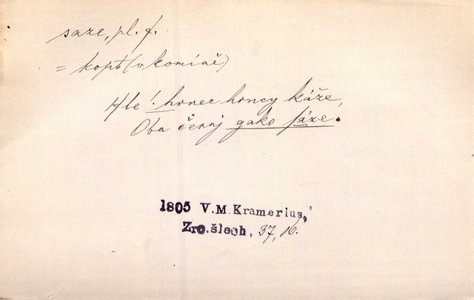 saze, pl. f.
= kopt (v komíně)
Hle! hrnec hrncy káže,
Oba černj gako sáze.
1805 V.M.Kramerius,
Zrc.šlech, 37, 16.